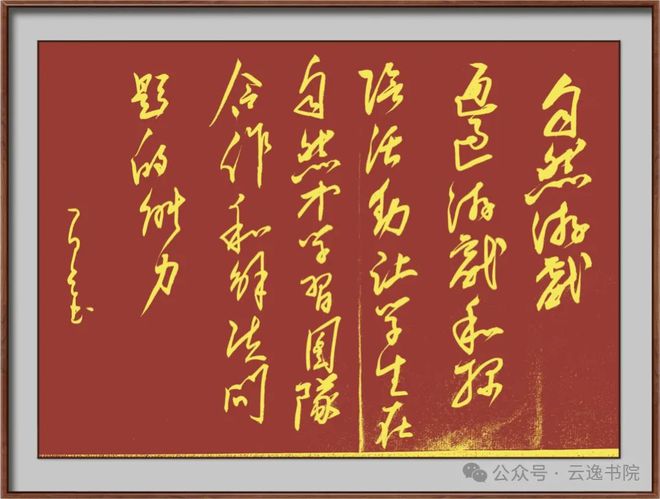 自然游戲
通过游戲和探
险活動让学生在
自然中学習團隊
合作和解决问
题的能力
公众号·云逸书院